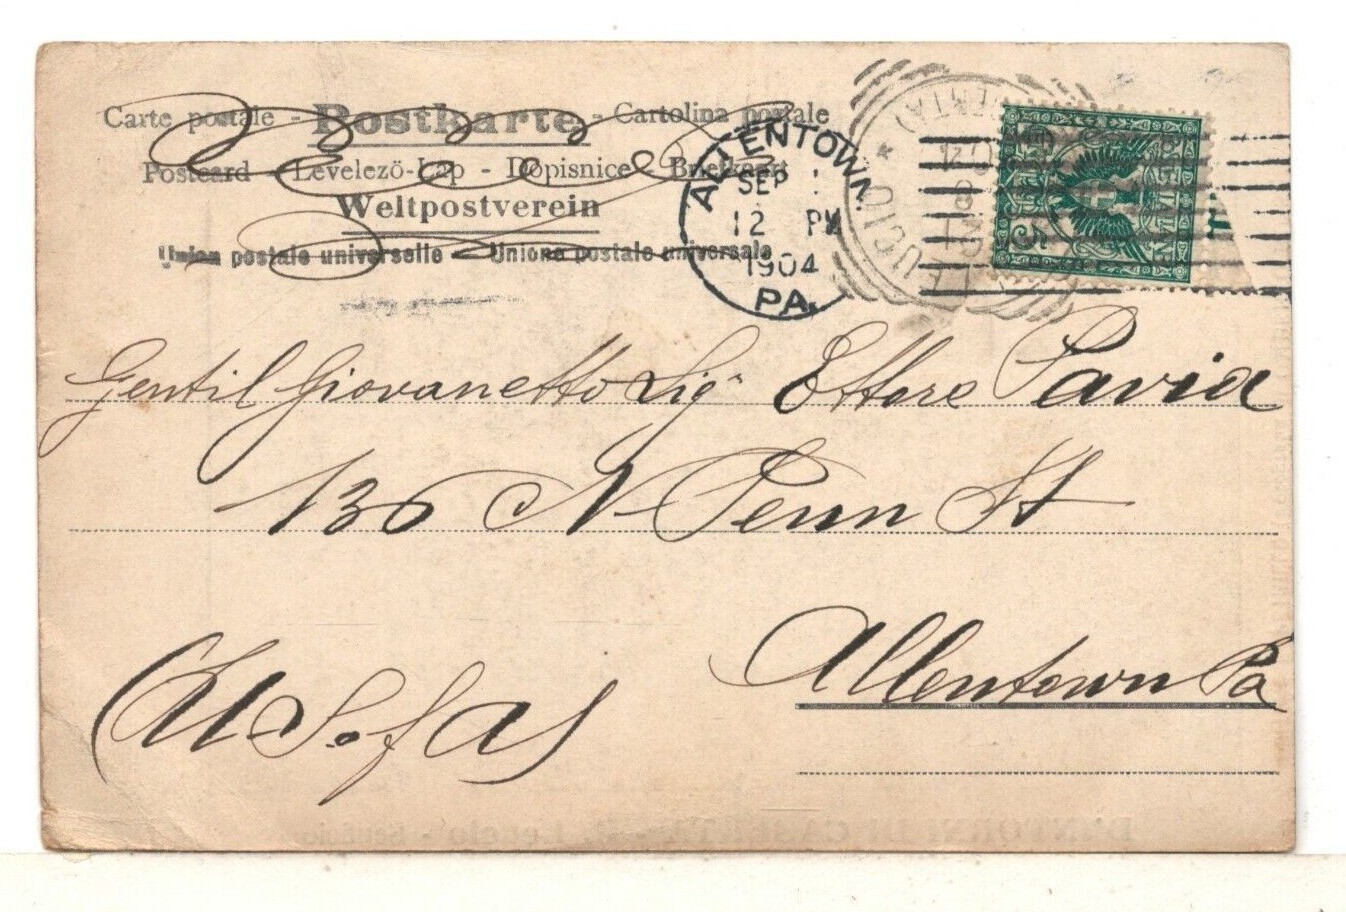 Carte postale - Postkarte - Cartolina postale
Postcard - Levelező-Lap - Dopisnice - Briefkaart
Weltpostverein
Union postale universelle - Unione postale universale
ALLENTOWN,
SEP 1
12 PM
1904
PA.
5
Gentil Giovanetto Sig Ettore Pavia
136 N Penn St
Allentown Pa